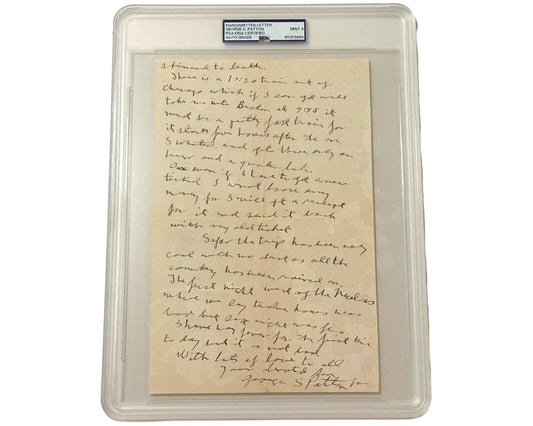 HANDWRITTEN LETTER
GEORGE S. PATTON
PSA/DNA CERTIFIED
AUTO GRADE
MINT 9
to death.
There is a 10:30 train out of
Chicago which if I can get will
take me into Boston at 9:45 it
must be a pretty fast train for
it starts five hours after the one
I wanted and gets there only an
hour and a quarter late.
if I have to get a new
ticket I wont loose any
money for I will get a receipt
for it and send it back
with my old ticket
So far the trip has been very
cool with no dust as all the
country has been rained on.
The first night west of the
where we lay twelve hours was
but last night was fine
I have hay fever for the first time
to day but it is not bad
With lots of love to all
Your devoted son
George S Patton Jr